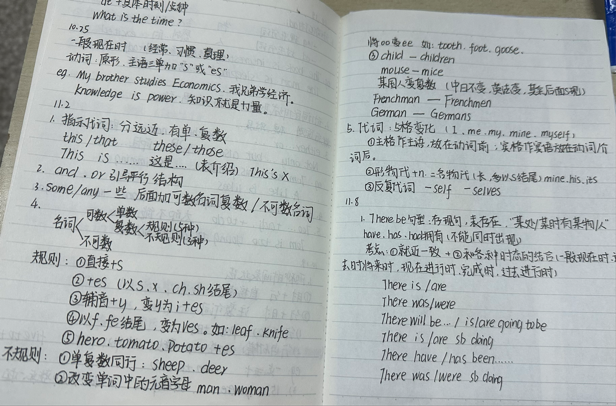 it + 具体时刻/5种
what is the time?
10.25
一般现在时 (经常、习惯、真理)
动词:原形、主语三单加"s"或"es"
eg. My brother studies Economics. 我兄弟学经济。
knowledge is power. 知识就是力量。
11.2
1. 指示代词:分远近、有单、复数
this/that these/those
This is ...... 这是.... (表介绍) This's X
2. and、or 引导平行结构
3. some/any 一些 后面加可数名词复数/不可数名词
4.
名词 可数 单数
复数 规则(5种)
不规则(3种)
不可数
规则:①直接+s
②+es (以s、x、ch、sh结尾)
③辅音+y、变y为i+es
④以f、fe结尾,变为ves。如:leaf、knife
⑤hero、tomato、potato +es
不规则:①单复数同行:sheep、deer
②改变单词中的元音字母 man、woman
将oo变ee 如:tooth、foot、goose。
③child — children
mouse — mice
某国人变复数 (中日不变,英法变,其余后面加s)
Frenchman — Frenchmen
German — Germans
5. 代词:5格变化 (I、me、my、mine、myself)
①主格作主语,放在动词前;宾格作宾语放在动词/介
词后。
②形物代+n. =名物代 mine、his、its
③反身代词 -self -selves
11.8
1. There be句型:存现句,表存在,"某处/某时有某物/人"
have、has、had拥有 (不能同时出现)
考点:①就近一致 + ②和各种时态的结合 (一般现在时、过
去时、将来时、现在进行时、完成时、过去进行时)
There is /are
There was/were
There will be... / is/are going to be
There is /are sb doing
There have / has been......
There was /were sb doing